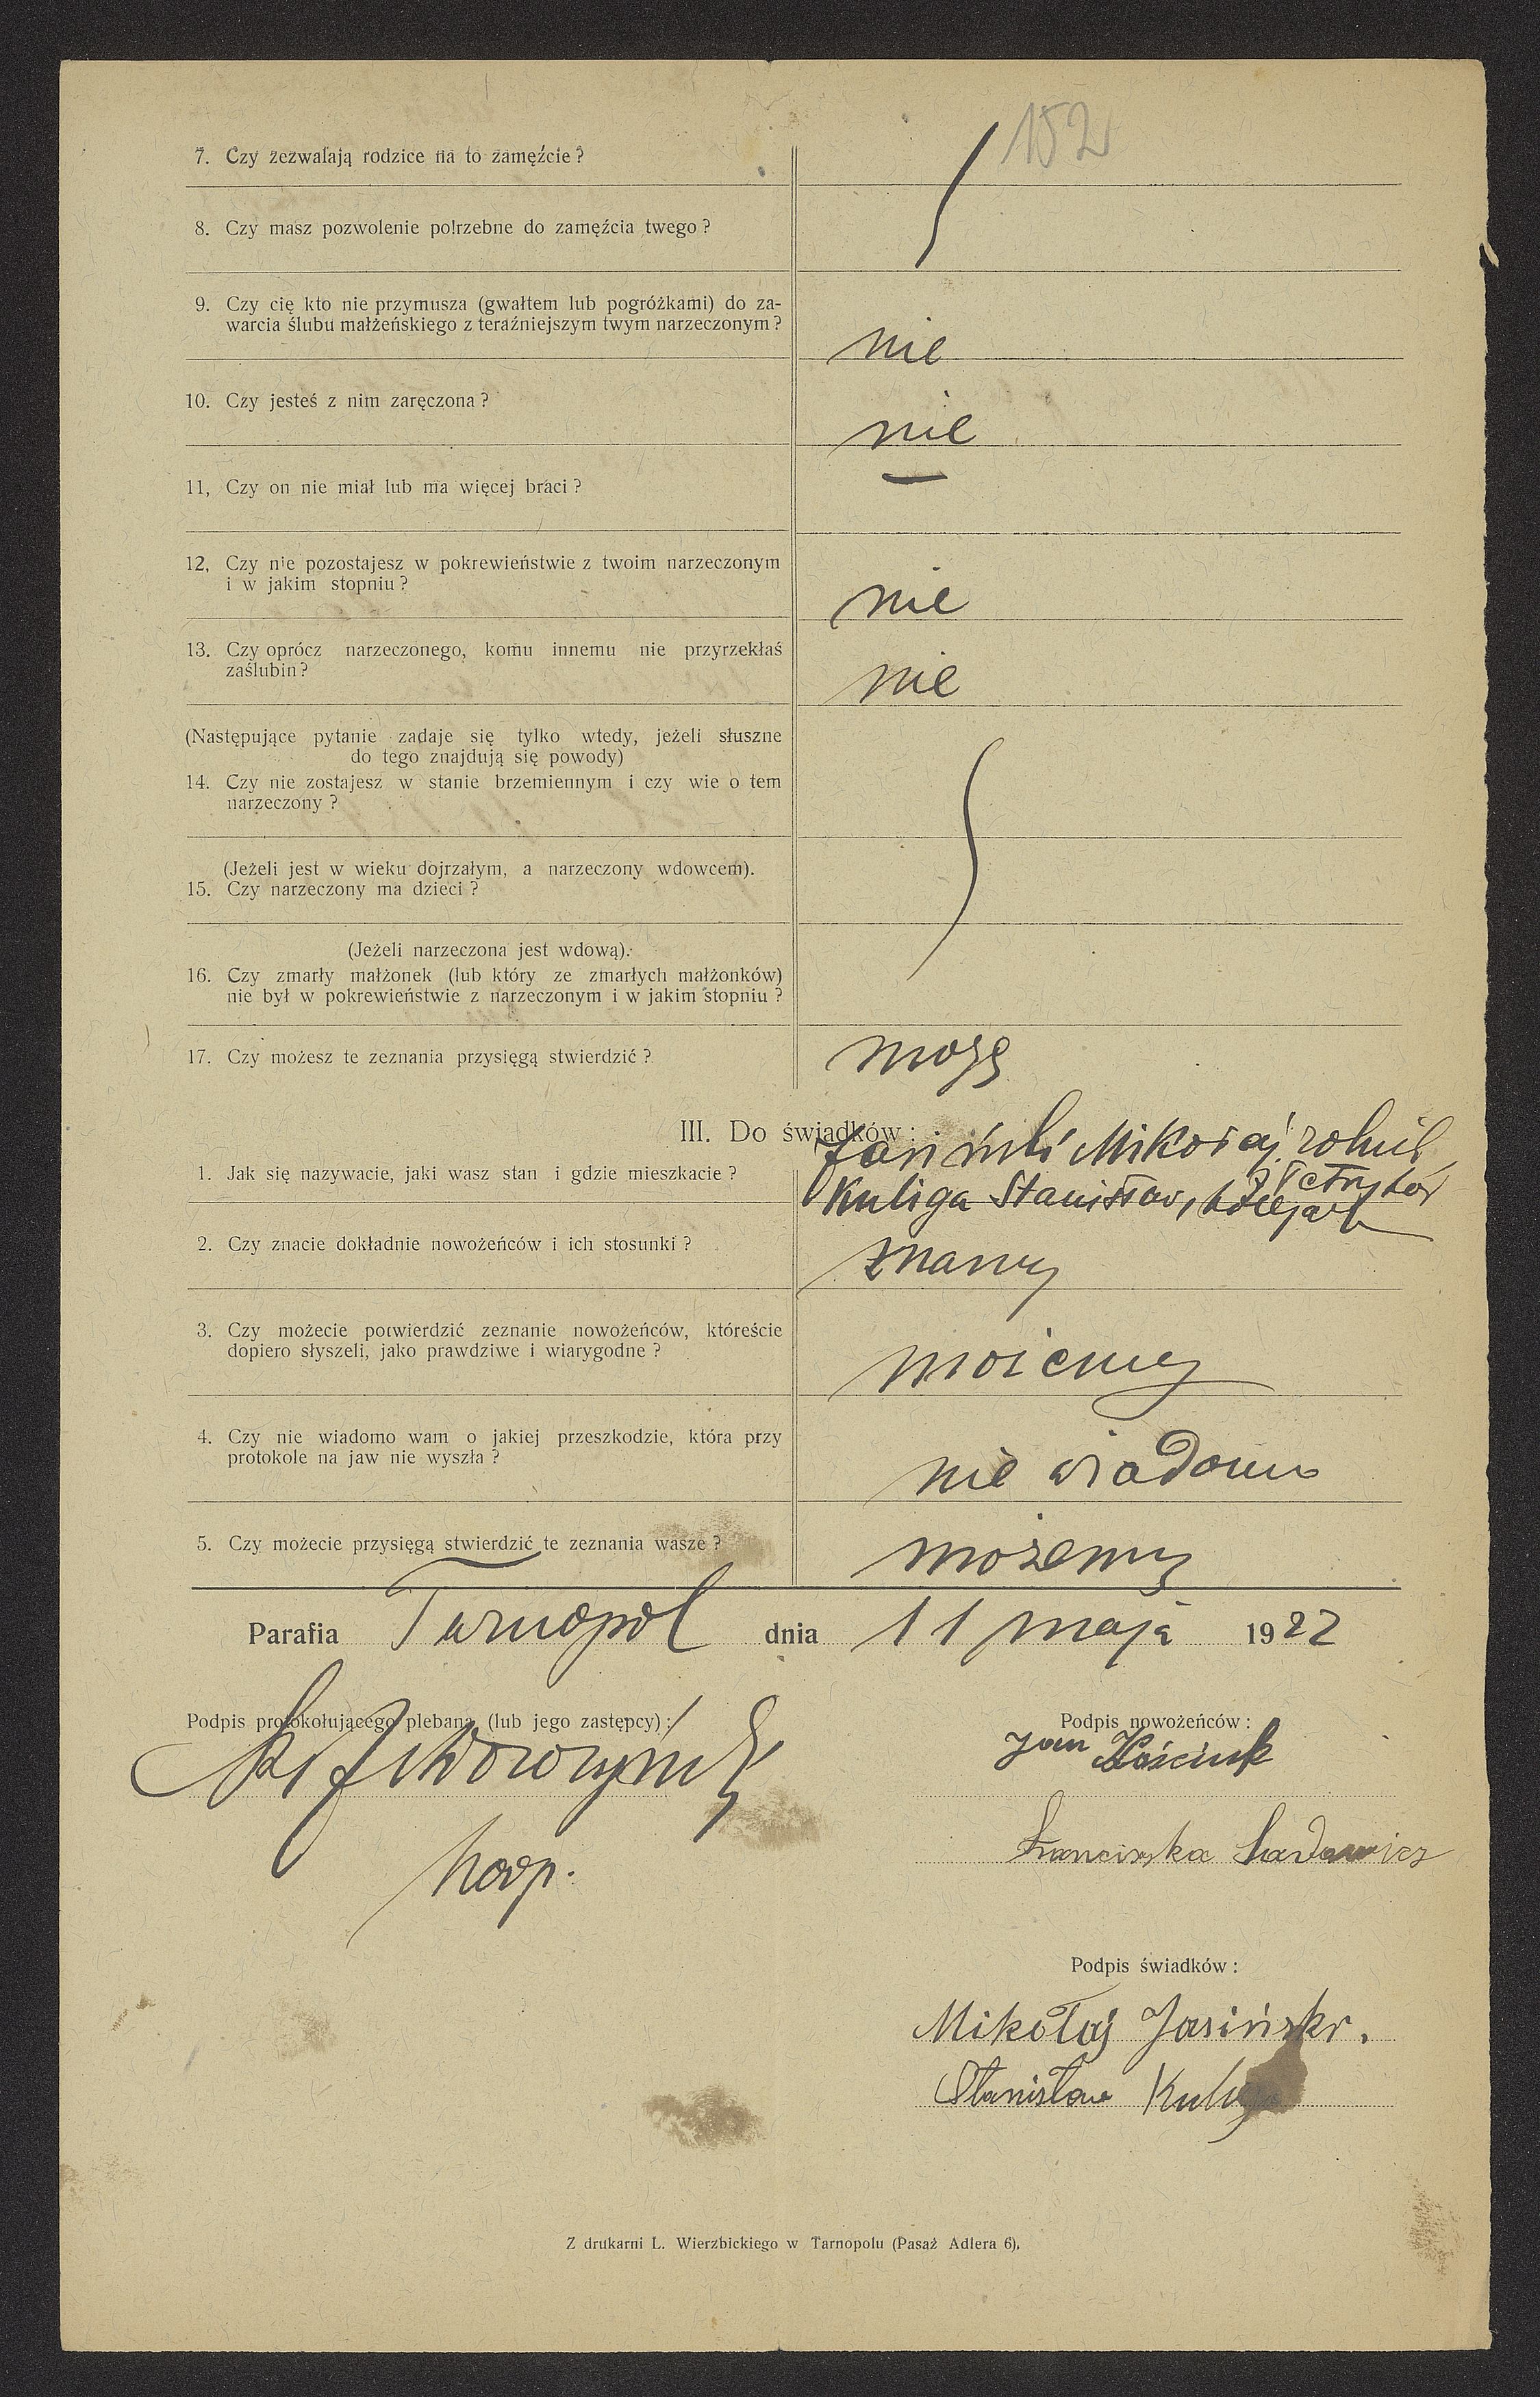 152
7. Czy zezwalają rodzice na to zamęźcie?
8. Czy masz pozwolenie potrzebne do zamęźcia twego?
9. Czy cię kto nie przymusza (gwałtem lub pogróżkami) do za-
warcia ślubu małżeńskiego z teraźniejszym twym narzeczonym?
nie
10. Czy jesteś z nim zaręczona?
nie
11, Czy on nie miał lub ma więcej braci?
—
12, Czy nie pozostajesz w pokrewieństwie z twoim narzeczonym
i w jakim stopniu?
nie
13. Czy oprócz narzeczonego, komu innemu nie przyrzekłaś
zaślubin?
nie
(Następujące pytanie zadaje się tylko wtedy, jeżeli słuszne
do tego znajdują się powody)
14. Czy nie zostajesz w stanie brzemiennym i czy wie o tem
narzeczony?
(Jeżeli jest w wieku dojrzałym, a narzeczony wdowcem).
15. Czy narzeczony ma dzieci?
(Jeżeli narzeczona jest wdową).
16. Czy zmarły małżonek (lub który ze zmarłych małżonków)
nie był w pokrewieństwie z narzeczonym i w jakim stopniu?
17. Czy możesz te zeznania przysięgą stwierdzić?
mogę
III. Do świadków:
1. Jak się nazywacie, jaki wasz stan i gdzie mieszkacie?
Jasiński Mikołaj, rolnik
Kuliga Stanisław,
2. Czy znacie dokładnie nowożeńców i ich stosunki?
znamy
3. Czy możecie potwierdzić zeznanie nowożeńców, któreście
dopiero słyszeli, jako prawdziwe i wiarygodne?
możemy
4. Czy nie wiadomo wam o jakiej przeszkodzie, która przy
protokole na jaw nie wyszła?
nie wiadomo
5. Czy możecie przysięgą stwierdzić te zeznania wasze?
możemy
Parafia Tarnopol dnia 11 maja 1922
Podpis protokołującego plebana (lub jego zastępcy):
Podpis nowożeńców:
Jan Kościuk
Franciszka
Podpis świadków:
Mikołaj Jasiński.
Stanisław Kuliga
Z drukarni L. Wierzbickiego w Tarnopolu (Pasaż Adlera 6).